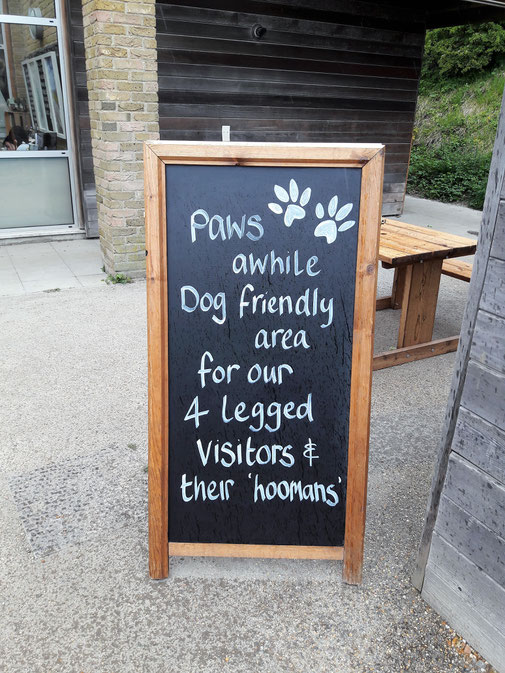 Paws
awhile
Dog friendly
area
for our
4 legged
visitors &
their 'hoomans'